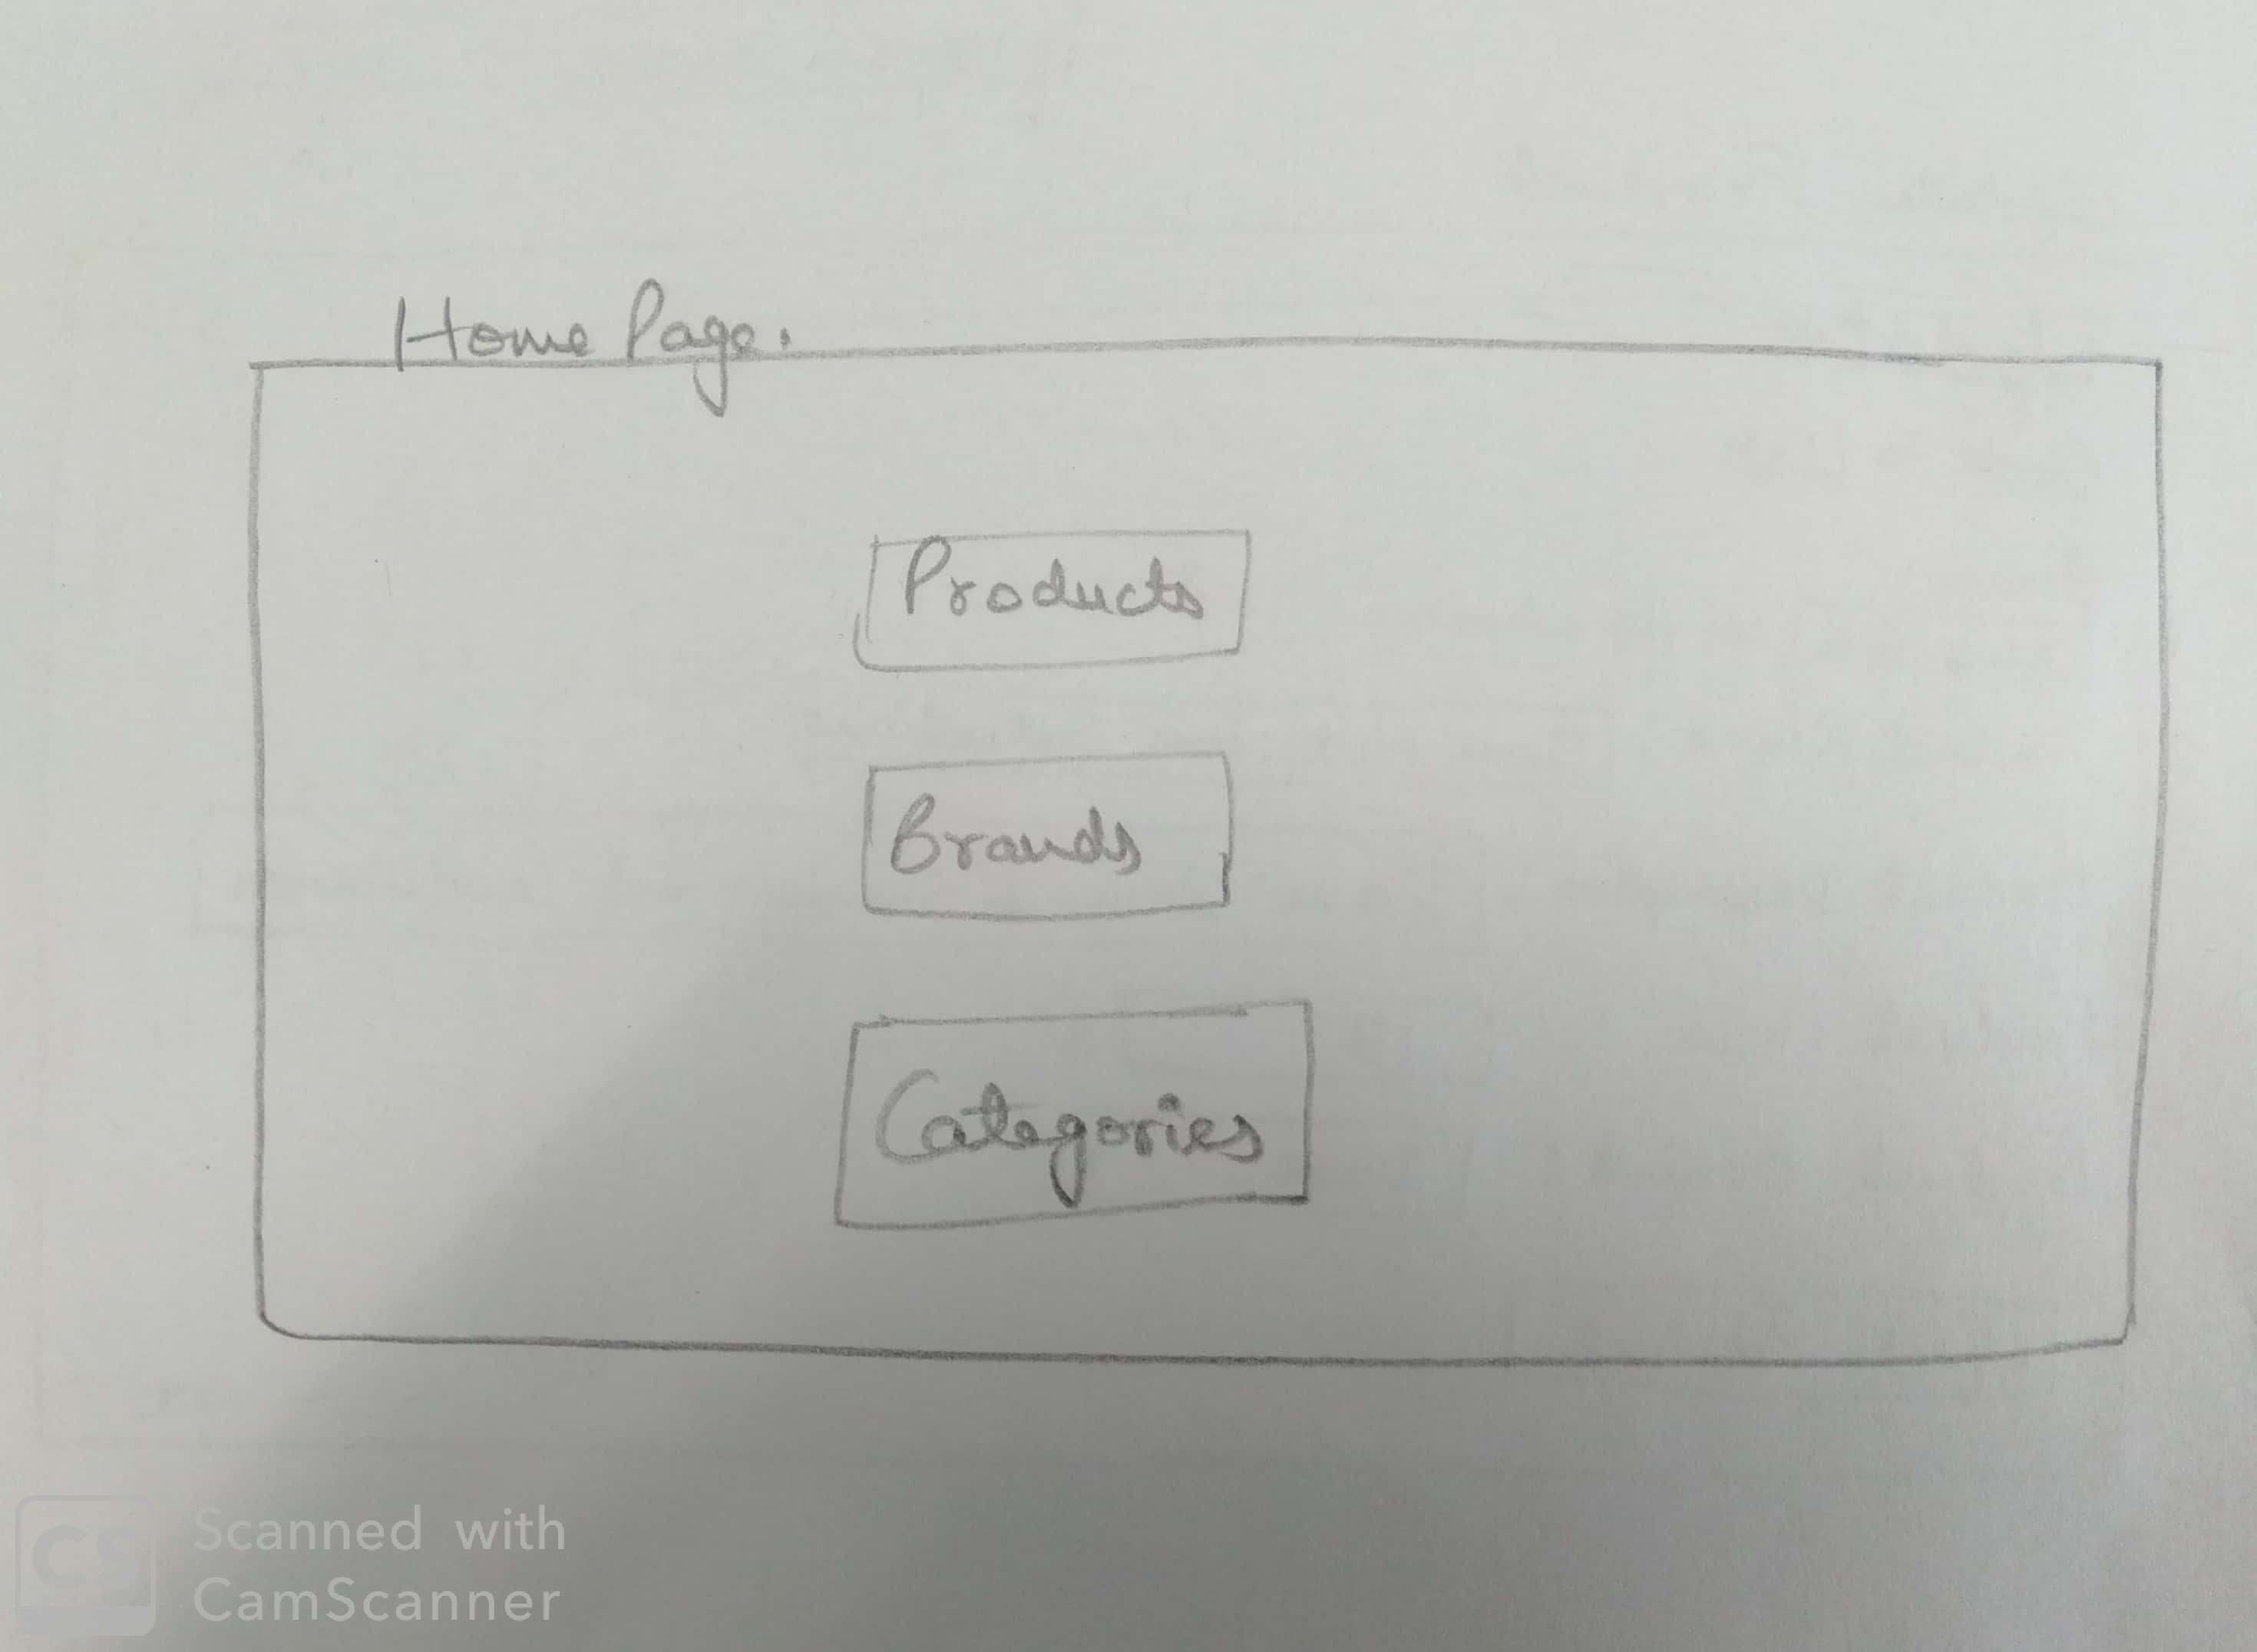 Home Page.
Products
Brands
Categories
CS
Scanned with
CamScanner